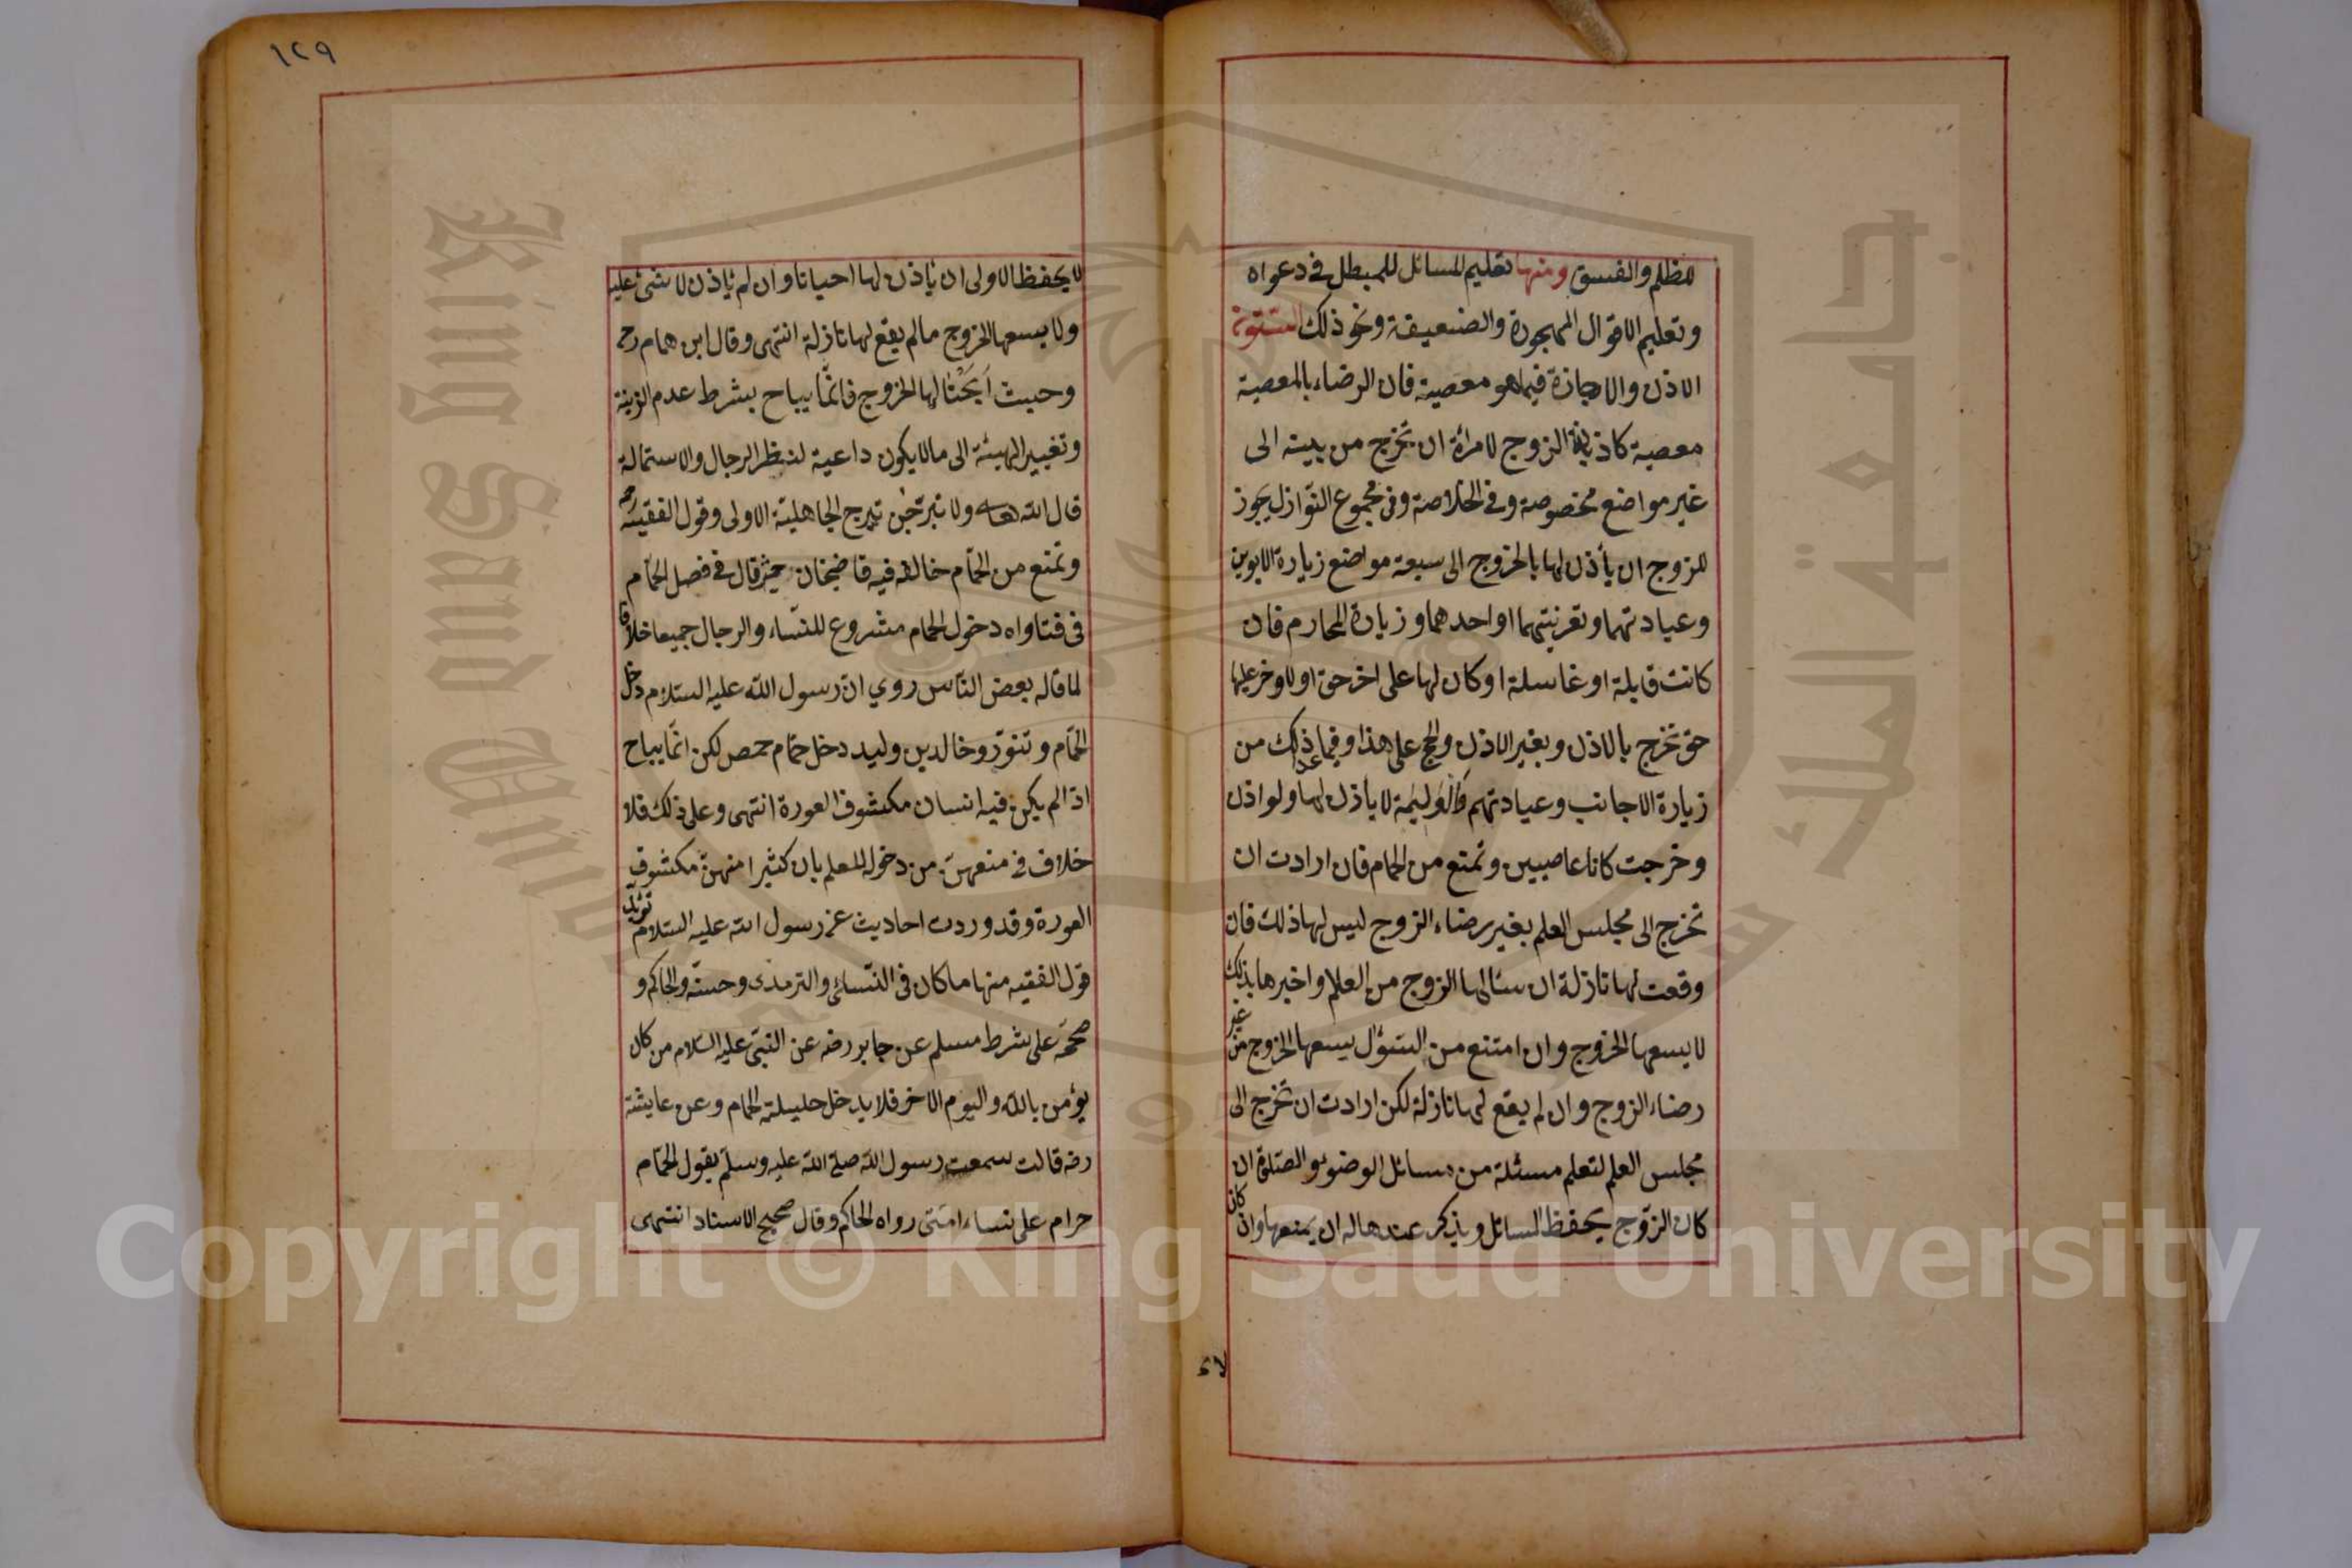 للظلم والفسق ومنها تعليم المسائل للمبطل في دعواه
وتعليم الاقوال المهجورة والضعيفة ونحو ذلك الستون
الاذن والاجازة فيما هو معصية فان الرضاء بالمعصية
معصية كاذن الزوج لامرأة ان تخرج من بيته الى
غير مواضع مخصوصة وفي الخلاصة وفي مجموع النوازل يجوز
للزوج ان يأذن لها بالخروج الى سبعة مواضع زيارة الابوين
وعيادتهما وتعزيتهما او احدهما وزيارة المحارم فان
كانت قابلة او غاسلة او كان لها على اخر حق او لاخر عليها
حق تخرج بالاذن وبغير الاذن والحج على هذا وفيما عدا ذلك من
زيارة الاجانب وعيادتهم والوليمة لا يأذن لها ولو اذن
وخرجت كانا عاصيين وتمنع من الحمام فان ارادت ان
تخرج الى مجلس العلم بغير رضاء الزوج ليس لها ذلك فان
وقعت لها نازلة ان سئال لها الزوج من العلم واخبرها بذلك
لا يسعها الخروج وان امتنع من السؤل يسعها الخروج من غير
رضاء الزوج وان لم يقع لها نازلة لكن ارادت ان تخرج الى
مجلس العلم لتعلم مسئلة من مسائل الوضوء والصلوة ان
كان الزوج يحفظ المسائل ويذكر عندها له ان يمنعها وان كان
لا
١٢٩
لا يحفظ الاولى ان يأذن لها احيانا وان لم يأذن لا شئ عليه
ولا يسعها الخروج مالم يقع لها نازلة انتهى وقال ابن همام رح
وحيث اَبَحْنا لها الخروج فانمّا يباح بشرط عدم الزينة
وتغيير الهيئة الى مالا يكون داعية لنظر الرجال والاستمالة
قال الله تعالى ولا تبرّجن تبرج الجاهلية الاولى وقول الفقيه
وتمنع من الحمّام خالفه فيه قاضيخان حيث قال في فصل الحمّام
في فتاواه دخول الحمام مشروع للنسّاء والرجال جميعا خلافا
لما قاله بعض النّاس روي انّ رسول الله عليه السّلام دخل
الحمّام وتنوّر وخالد بن وليد دخل حمّام حمص لكن انّما يباح
اذا لم يكن فيه انسان مكشوف العورة انتهى وعلى ذلك فلا
خلاف في منعهنّ من دخوله للعلم بان كثيرا منهنّ مكشوف
العورة وقد وردت احاديث عن رسول الله عليه السّلام تؤيد
قول الفقيه منها ما كان في النّسائي والترمذى وحسنّه والحاكم و
صححّه على شرط مسلم عن جابر رضه عن النبىّ عليه السّلام من كان
يؤمن بالله واليوم الاخر فلا يدخل حليلته الحمام وعن عايشة
رضه قالت سمعت رسول الله صلى الله عليه وسلّم يقول الحمّام
حرام على نساء امّتى رواه الحاكم وقال صحيح الاسناد انتهى
جامعة الملك
King Saud University
1957
Copyright © King Saud University